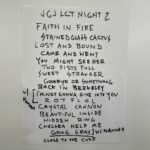 JGJ LCT NIGHT 2
FAITH IN FIRE
STAINED GLASS CACTUS
LOST AND BOUND
CAME AND WENT
YOU MIGHT SEE HER
TWO FISTS FULL
SWEET STRANGER
GOODBYE OR SOMETHING
BACK IN BERKELEY
I'M NOT GONNA GIVE INTO YOU
ROTFLOL
CRYSTAL CANNON
BEAUTIFUL INSIDE
HIDDEN RING
CHELSEA HELP ME
GONG GRAY
CLOSE TO THE CUSP